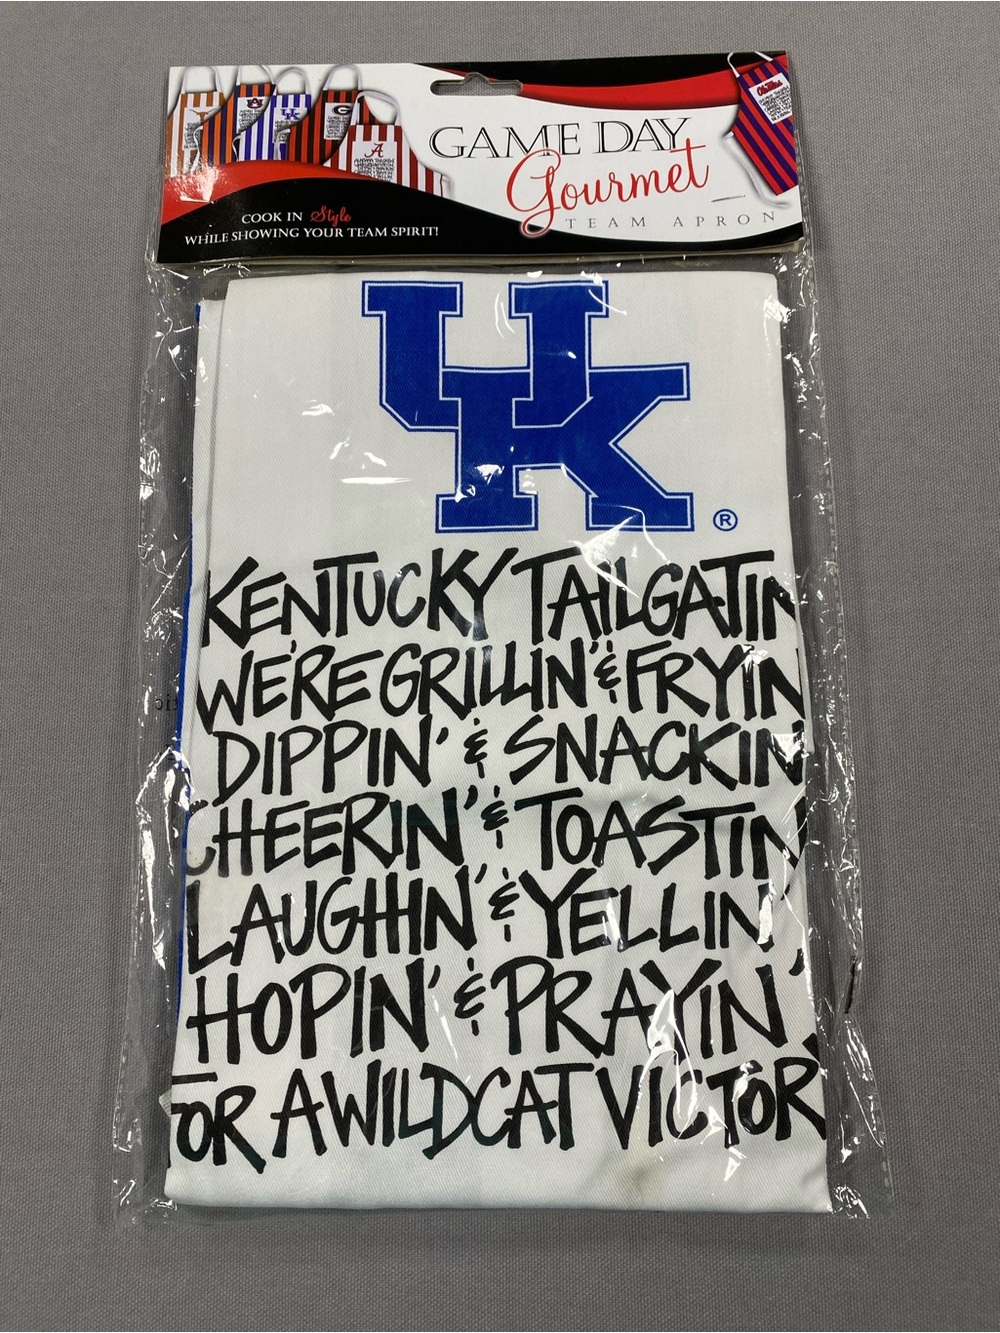 GAME DAY
Gourmet
TEAM APRON
COOK IN Style
WHILE SHOWING YOUR TEAM SPIRIT!
UK
A
G
UK
Ole Miss
®
KENTUCKY TAILGATIN
WE'RE GRILLIN' & FRYIN
DIPPIN' & SNACKIN
CHEERIN' & TOASTIN
LAUGHIN' & YELLIN'
HOPIN' & PRAYIN'
FOR A WILDCAT VICTOR